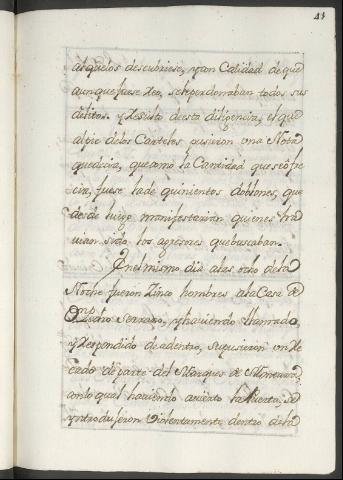 41
alquelos descubriese, y con Calidad de que
aunque fuese Reo, sele perdonaban todos sus
delitos. y Resultó de esta diligencia, el que
al pie de los Carteles pusieron una Nota
que decia, que como la Cantidad que se ofre
cia, fuese la de quinientos doblones, que
desde luego manifestarian quienes ha
vian sido los agresores que buscaban.
En el mismo dia alas ocho de la
Noche fueron Zinco hombres ala Casa de
Dn Pedro Serrano, y haviendo llamado,
y Respondido de adentro, supusieron un Re
cado de parte del Marques de
con lo qual haviendo avierto la Puerta, se
yntrodujeron Violentamente dentro de la